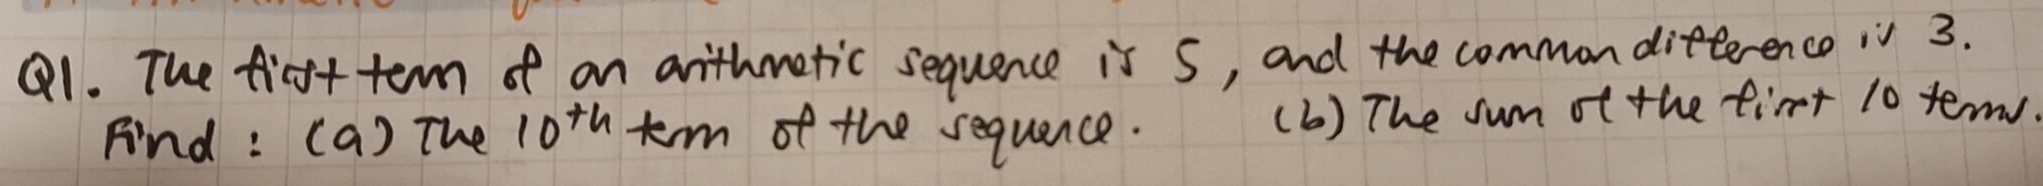 Q1. The first term of an arithmetic sequence is 5, and the common difference is 3.
Find : (a) The 10th term of the sequence. (b) The sum of the first 10 terms.